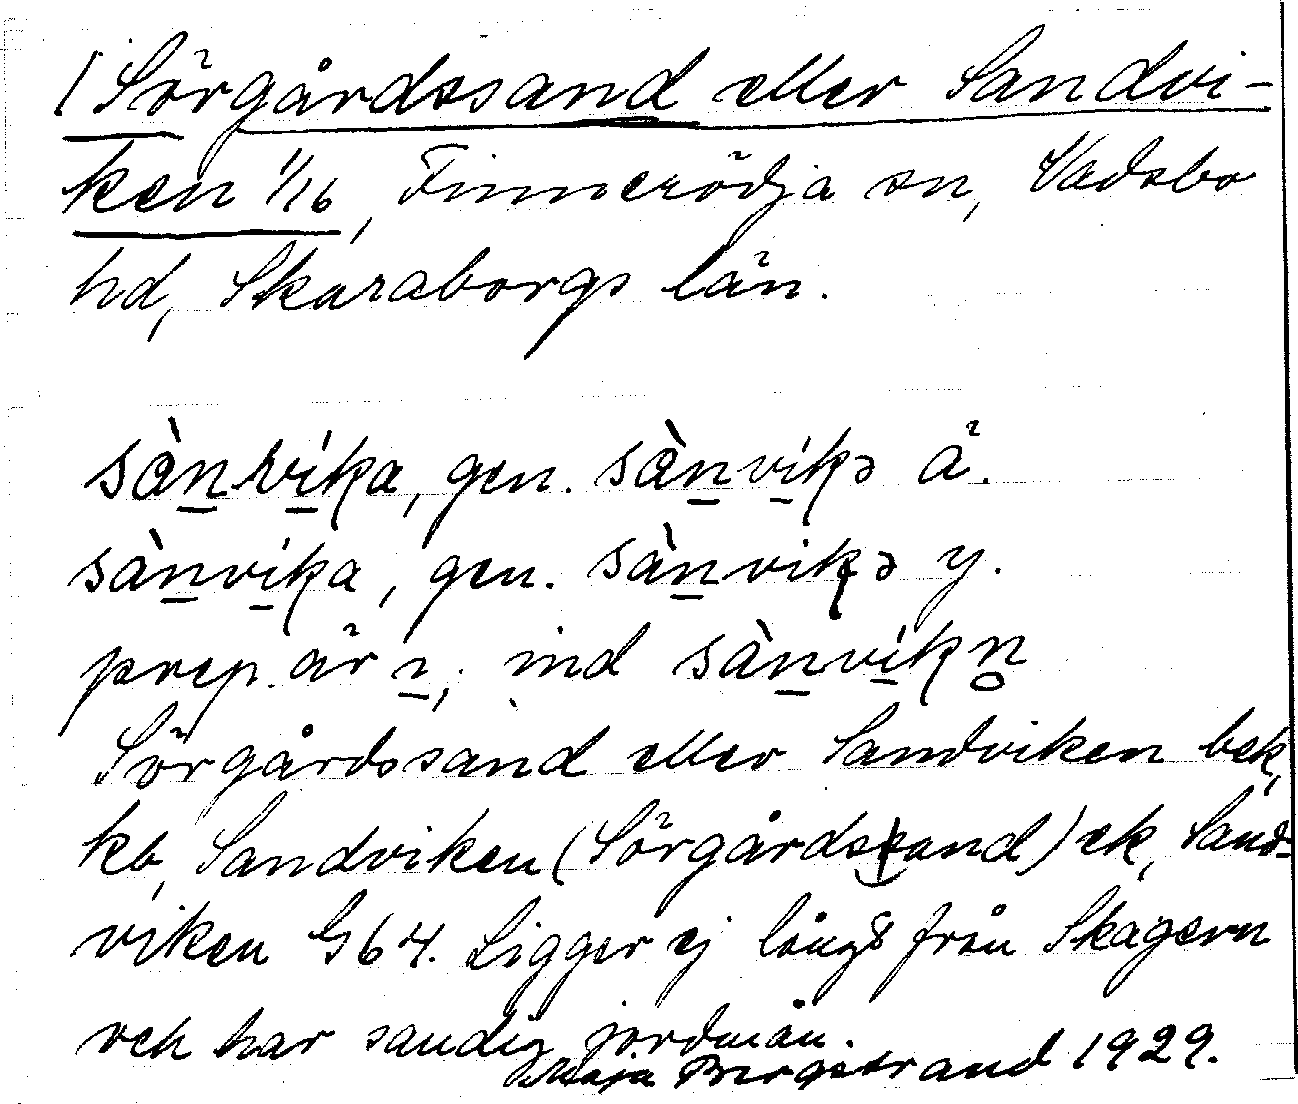 1 Sörgårdssand eller Sandvi-
ken 1/16, Finnerödja sn, Vadsbo
hd, Skaraborgs län.
sàn̠vi̠ka, gen. sàn̠vi̠kə ä.
sàn̠vi̠ka, gen. sàn̠vikə y.
prep. är ı̠, ind sàn̠vi̠kn̥
Sörgårdssand eller Sandviken bek,
kb, Sandviken (Sörgårdssand) ek, Sand-
viken G64. Ligger ej långt från Skagern
och har sandig jordmån.
Maja Bergstrand 1929.